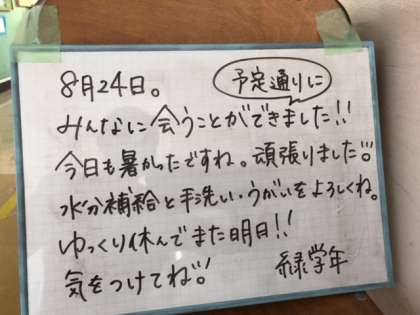 8月24日。
予定通りに
みんなに会うことができました!!
今日も暑かったですね。頑張りました!!
水分補給と手洗い・うがいをよろしくね。
ゆっくり休んでまた明日!!
気をつけてね!!
緑学年